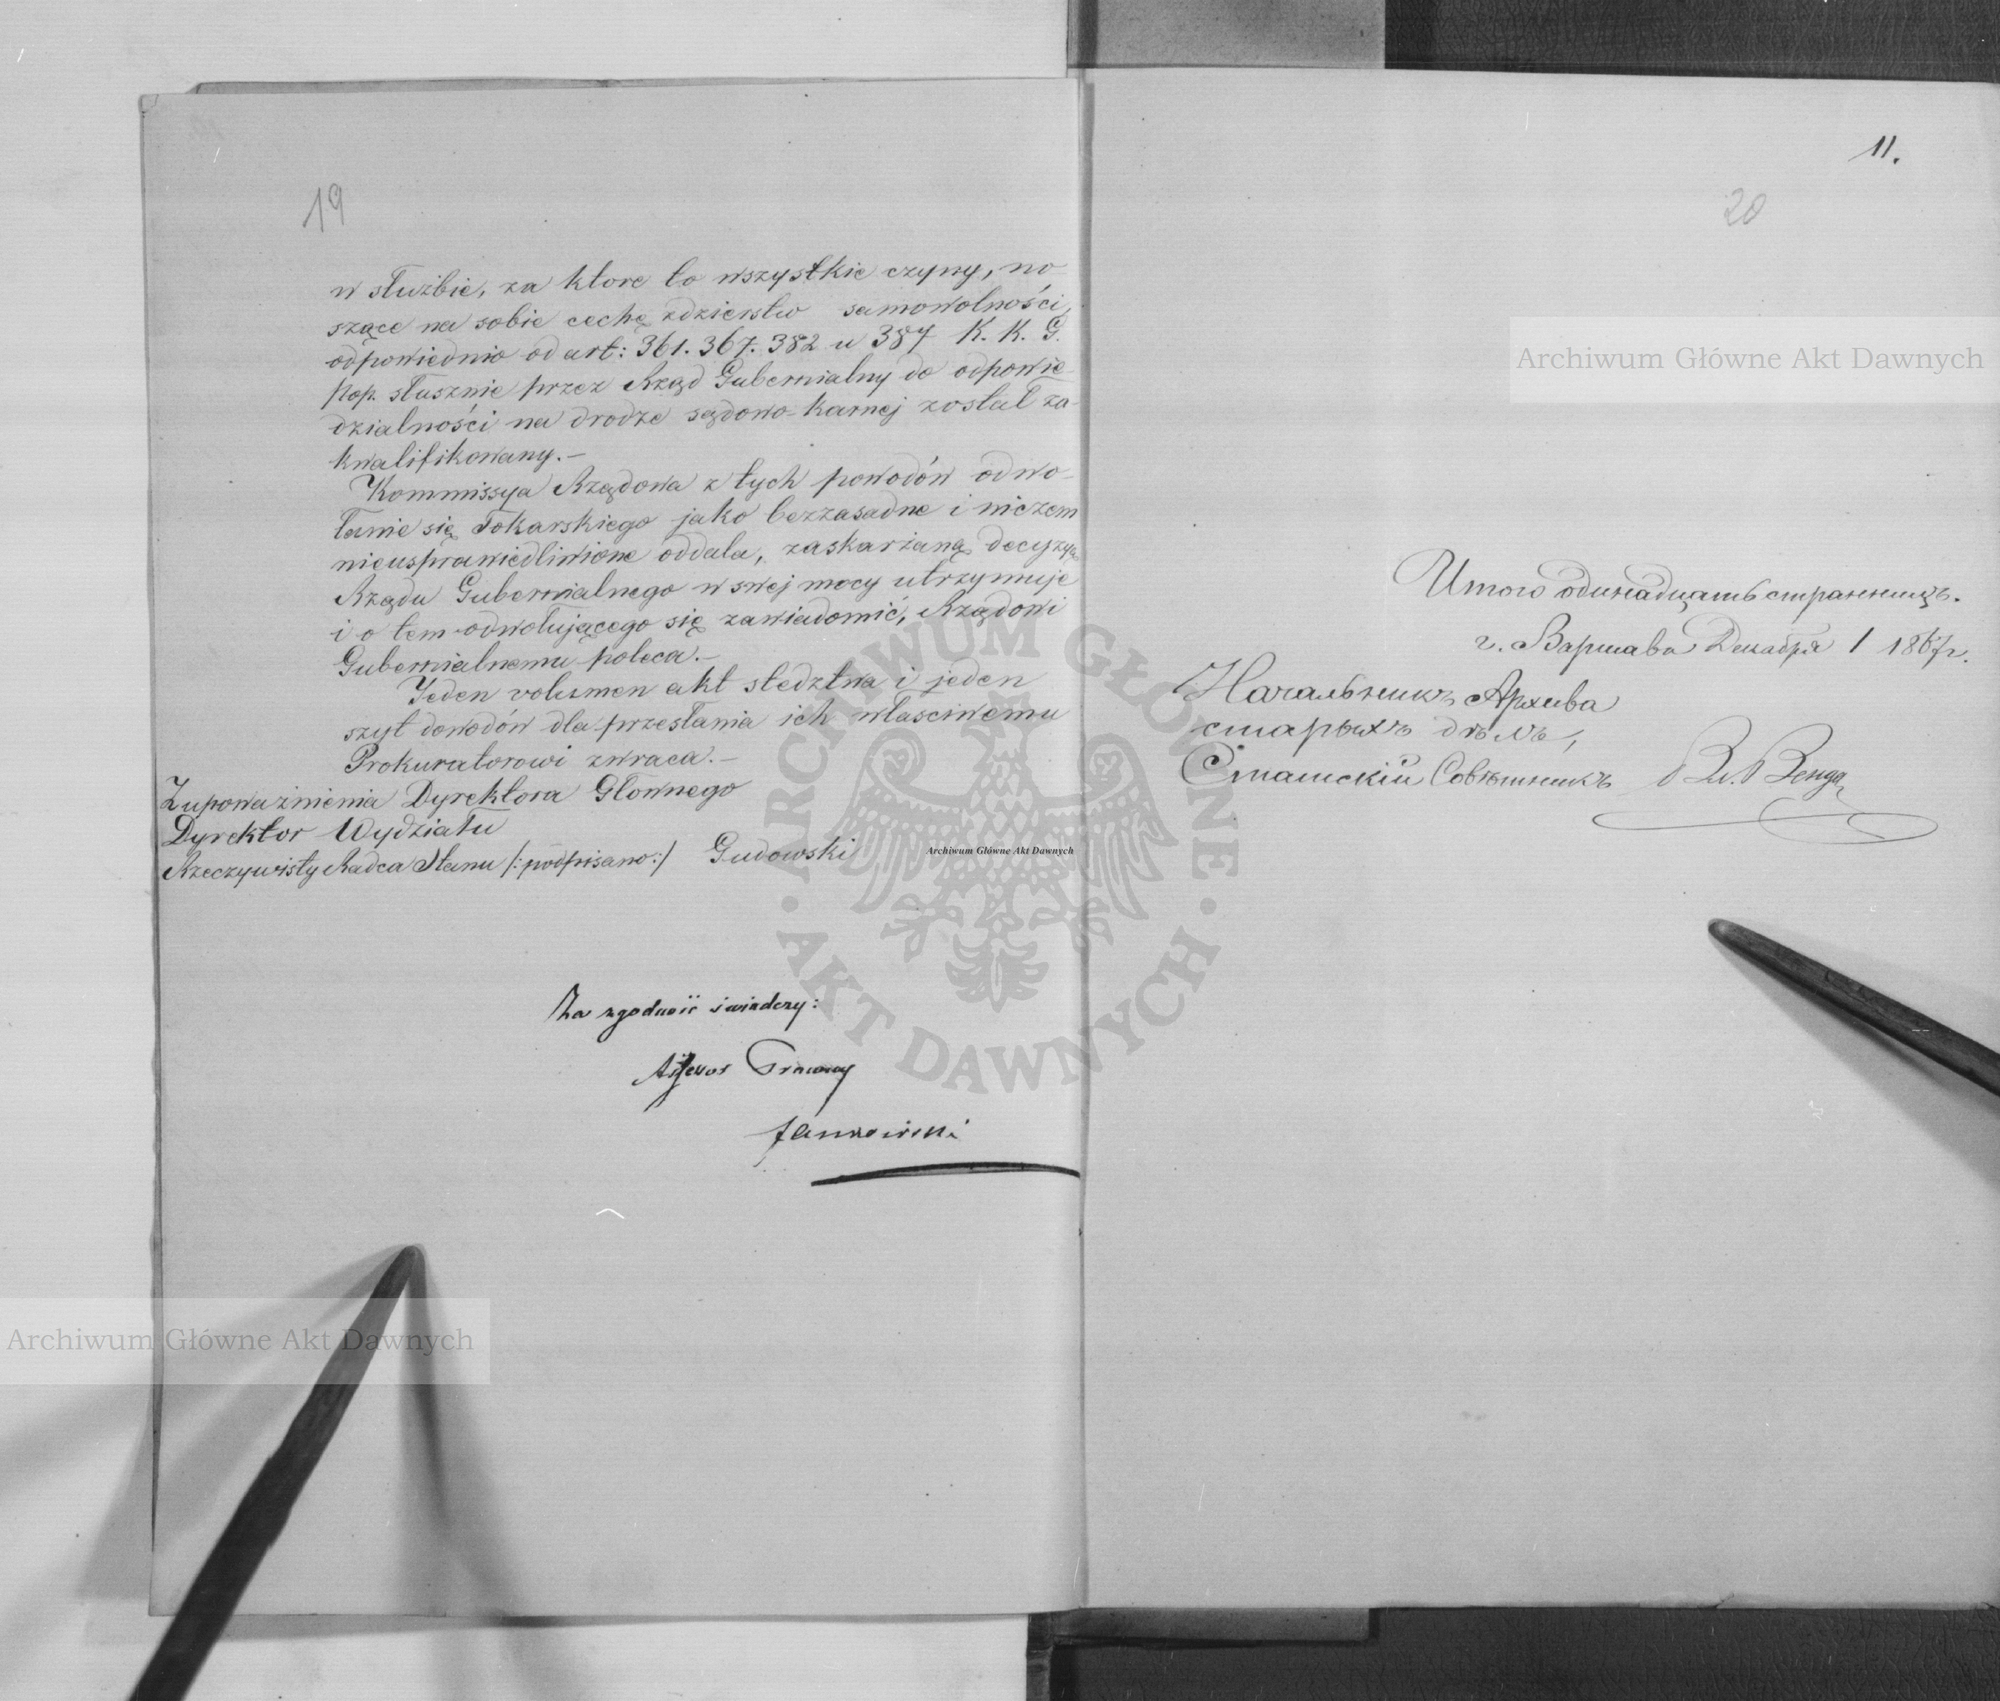 19
w służbie, za które to wszystkie czyny, no
szące na sobie cechę zdzierstw samowolności,
odpowiednio od art: 361. 367. 382 u 387 K. K. G.
Pop. słusznie przez Rząd Gubernialny do odpowie
dzialności na drodze sądowo-karnej został za-
kwalifikowany.-
Kommissya Rządowa z tych powodów odwo-
łanie się Tokarskiego jako bezzasadne i niczem
nieusprawiedliwione oddala, zaskarżaną decyzyę
Rządu Gubernialnego w swej mocy utrzymuje
i o tem odwołującego się zawiadomić, Rządowi
Gubernialnemu poleca.-
Jeden volumen akt śledztwa i jeden
szyt dowodów dla przesłania ich właściwemu
Prokuratorowi zwraca.-
Z upoważnienia Dyrektora Głownego
Dyrektor Wydziału
Rzeczywisty Radca Stanu /:podpisano:/ Gudowski
Za zgodność świadczy:
Assessor Prawny
Jankowski
11.
20
Итого одинадцать страницъ.
г. Варшава Декабря 1 1867 г.
Начальникъ Архива
старыхъ дѣлъ,
Статскій Совѣтникъ Вл. Венда
Archiwum Główne Akt Dawnych
Archiwum Główne Akt Dawnych
Archiwum Główne Akt Dawnych
ARCHIWUM GŁÓWNE · AKT DAWNYCH ·